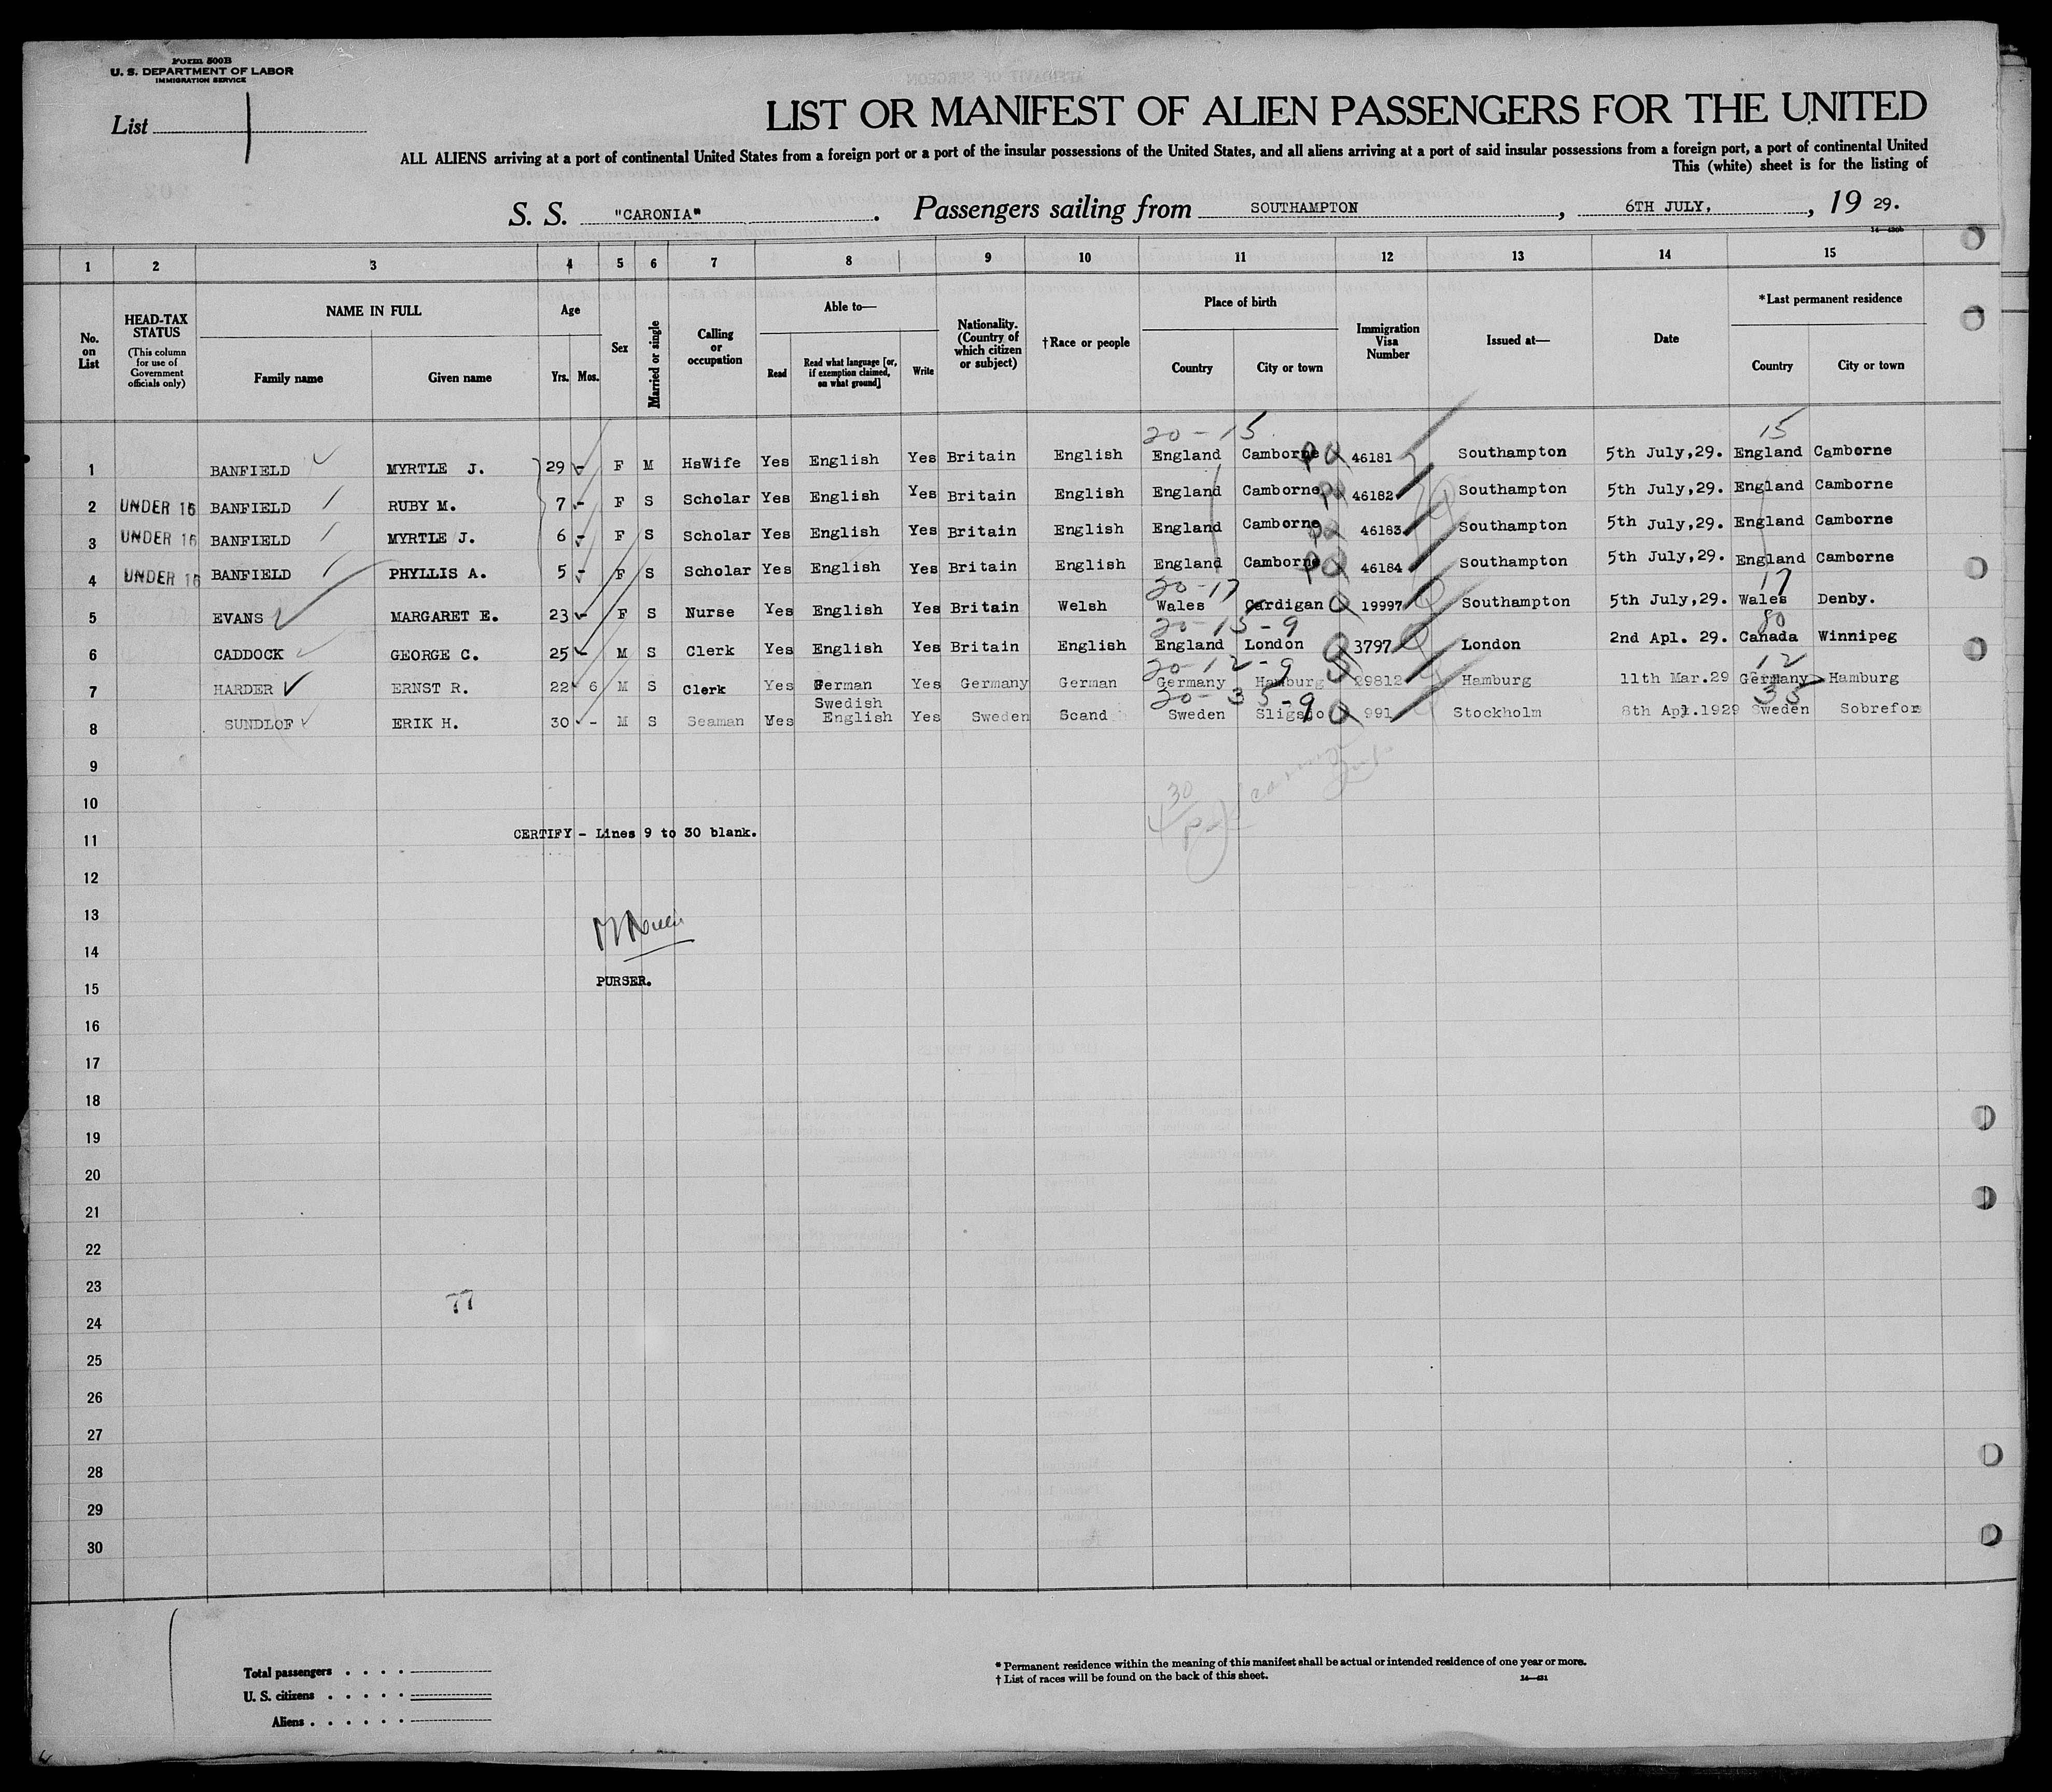 Form 500B
U. S. DEPARTMENT OF LABOR
IMMIGRATION SERVICE
List
LIST OR MANIFEST OF ALIEN PASSENGERS FOR THE UNITED
ALL ALIENS arriving at a port of continental United States from a foreign port or a port of the insular possessions of the United States, and all aliens arriving at a port of said insular possessions from a foreign port, a port of continental United
This (white) sheet is for the listing of
S. S. "CARONIA" . Passengers sailing from SOUTHAMPTON , 6TH JULY, , 19 29.
1 2 3 4 5 6 7 8 9 10 11 12 13 14 15
No. on List
HEAD-TAX STATUS (This column for use of Government officials only)
NAME IN FULL
Family name Given name
Age
Yrs. Mos.
Sex
Married or single
Calling or occupation
Able to—
Read Read what language [or, if exemption claimed, on what ground] Write
Nationality. (Country of which citizen or subject)
†Race or people
Place of birth
Country City or town
Immigration Visa Number
Issued at—
Date
*Last permanent residence
Country City or town
20-15 15
1 BANFIELD MYRTLE J. 29 - F M HsWife Yes English Yes Britain English England Camborne 46181 Southampton 5th July,29. England Camborne
2 UNDER 16 BANFIELD RUBY M. 7 - F S Scholar Yes English Yes Britain English England Camborne 46182 Southampton 5th July,29. England Camborne
3 UNDER 16 BANFIELD MYRTLE J. 6 - F S Scholar Yes English Yes Britain English England Camborne 46183 Southampton 5th July,29. England Camborne
4 UNDER 16 BANFIELD PHYLLIS A. 5 - F S Scholar Yes English Yes Britain English England Camborne 46184 Southampton 5th July,29. England Camborne
20-17 17
5 EVANS MARGARET E. 23 - F S Nurse Yes English Yes Britain Welsh Wales Cardigan 19997 Southampton 5th July,29. Wales Denby.
20-15-9 80
6 CADDOCK GEORGE C. 25 - M S Clerk Yes English Yes Britain English England London 3797 London 2nd Apl. 29. Canada Winnipeg
20-12-9 12
7 HARDER ERNST R. 22 6 M S Clerk Yes German Yes Germany German Germany Hamburg 29812 Hamburg 11th Mar.29 Germany Hamburg
20-35-9 35
8 SUNDLOF ERIK H. 30 - M S Seaman Yes Swedish English Yes Sweden Scand Sweden 991 Stockholm 8th Apl.1929 Sweden Sobrefors
9
10
11 CERTIFY - Lines 9 to 30 blank.
12
13
14
15 PURSER.
16
17
18
19
20
21
22
23
77
24
25
26
27
28
29
30
Total passengers . . . .
U. S. citizens . . . . .
Aliens . . . . . .
* Permanent residence within the meaning of this manifest shall be actual or intended residence of one year or more.
† List of races will be found on the back of this sheet.